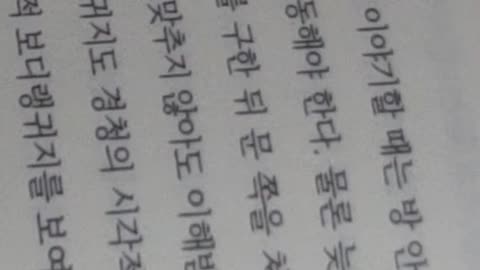 이야기할 때는 방 안
동해야 한다. 물론 늦
를 구한 뒤 문 쪽을
맞추지 않아도 이해받
귀지도 경청의 시각적
적 보디랭귀지를 보여